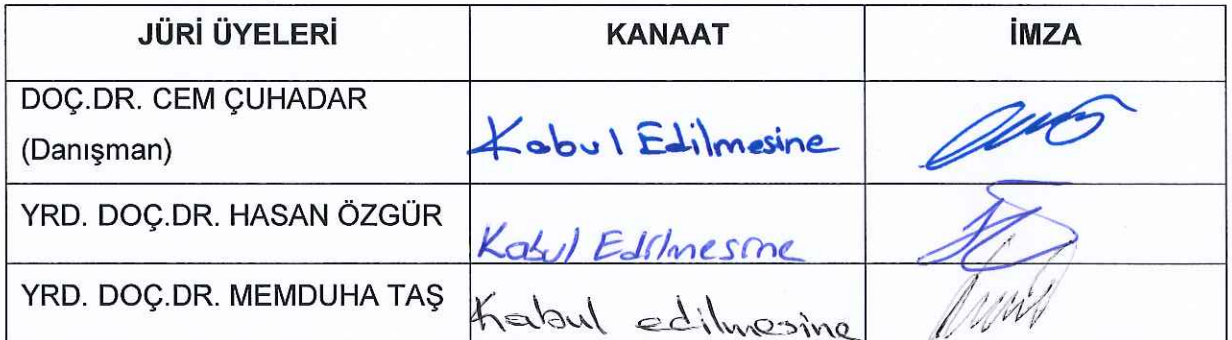 JÜRİ ÜYELERİ KANAAT İMZA
DOÇ.DR. CEM ÇUHADAR
(Danışman) Kabul Edilmesine
YRD. DOÇ.DR. HASAN ÖZGÜR Kabul Edilmesine
YRD. DOÇ.DR. MEMDUHA TAŞ Kabul edilmesine